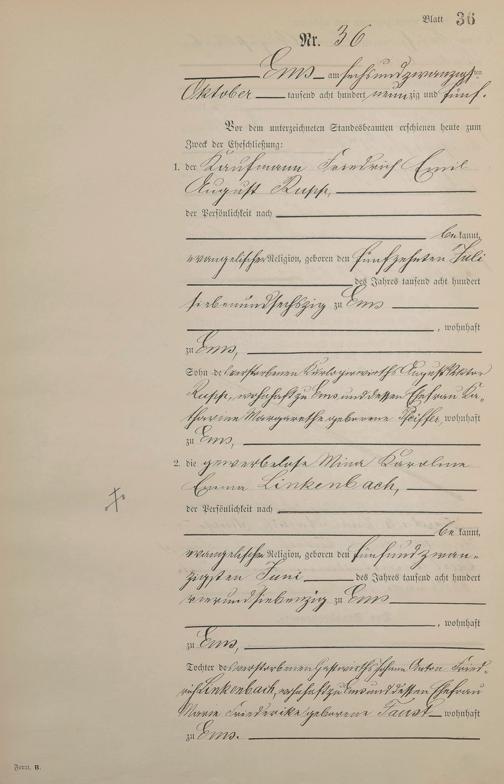 Blatt 36
Nr. 36
Ems am sechsundzwanzigsten
Oktober tausend acht hundert neunzig und fünf.
Vor dem unterzeichneten Standesbeamten erschienen heute zum
Zweck der Eheschließung:
1. der Kaufmann Friedrich Emil
August Rupp,
der Persönlichkeit nach
bekannt,
evangelischer Religion, geboren den fünfzehnten Juli
des Jahres tausend acht hundert
siebenundsechszig zu Ems
, wohnhaft
zu Ems,
Sohn des verstorbenen August
Rupp, wohnhaft zu Ems und dessen Ehefrau Ka-
tharine Margarethe geborene Pfeiffer wohnhaft
zu Ems,
2. die gewerbelose Mina Karoline
Emma Linkenbach,
der Persönlichkeit nach
bekannt,
evangelischer Religion, geboren den fünfundzwan-
zigsten Juni des Jahres tausend acht hundert
vierundsiebenzig zu Ems
, wohnhaft
zu Ems,
Tochter des verstorbenen Gastwirths Johann Anton Fried-
rich Linkenbach, wohnhaft zu Ems und dessen Ehefrau
Marie Friederike geborene Faust wohnhaft
zu Ems.
Form. B.